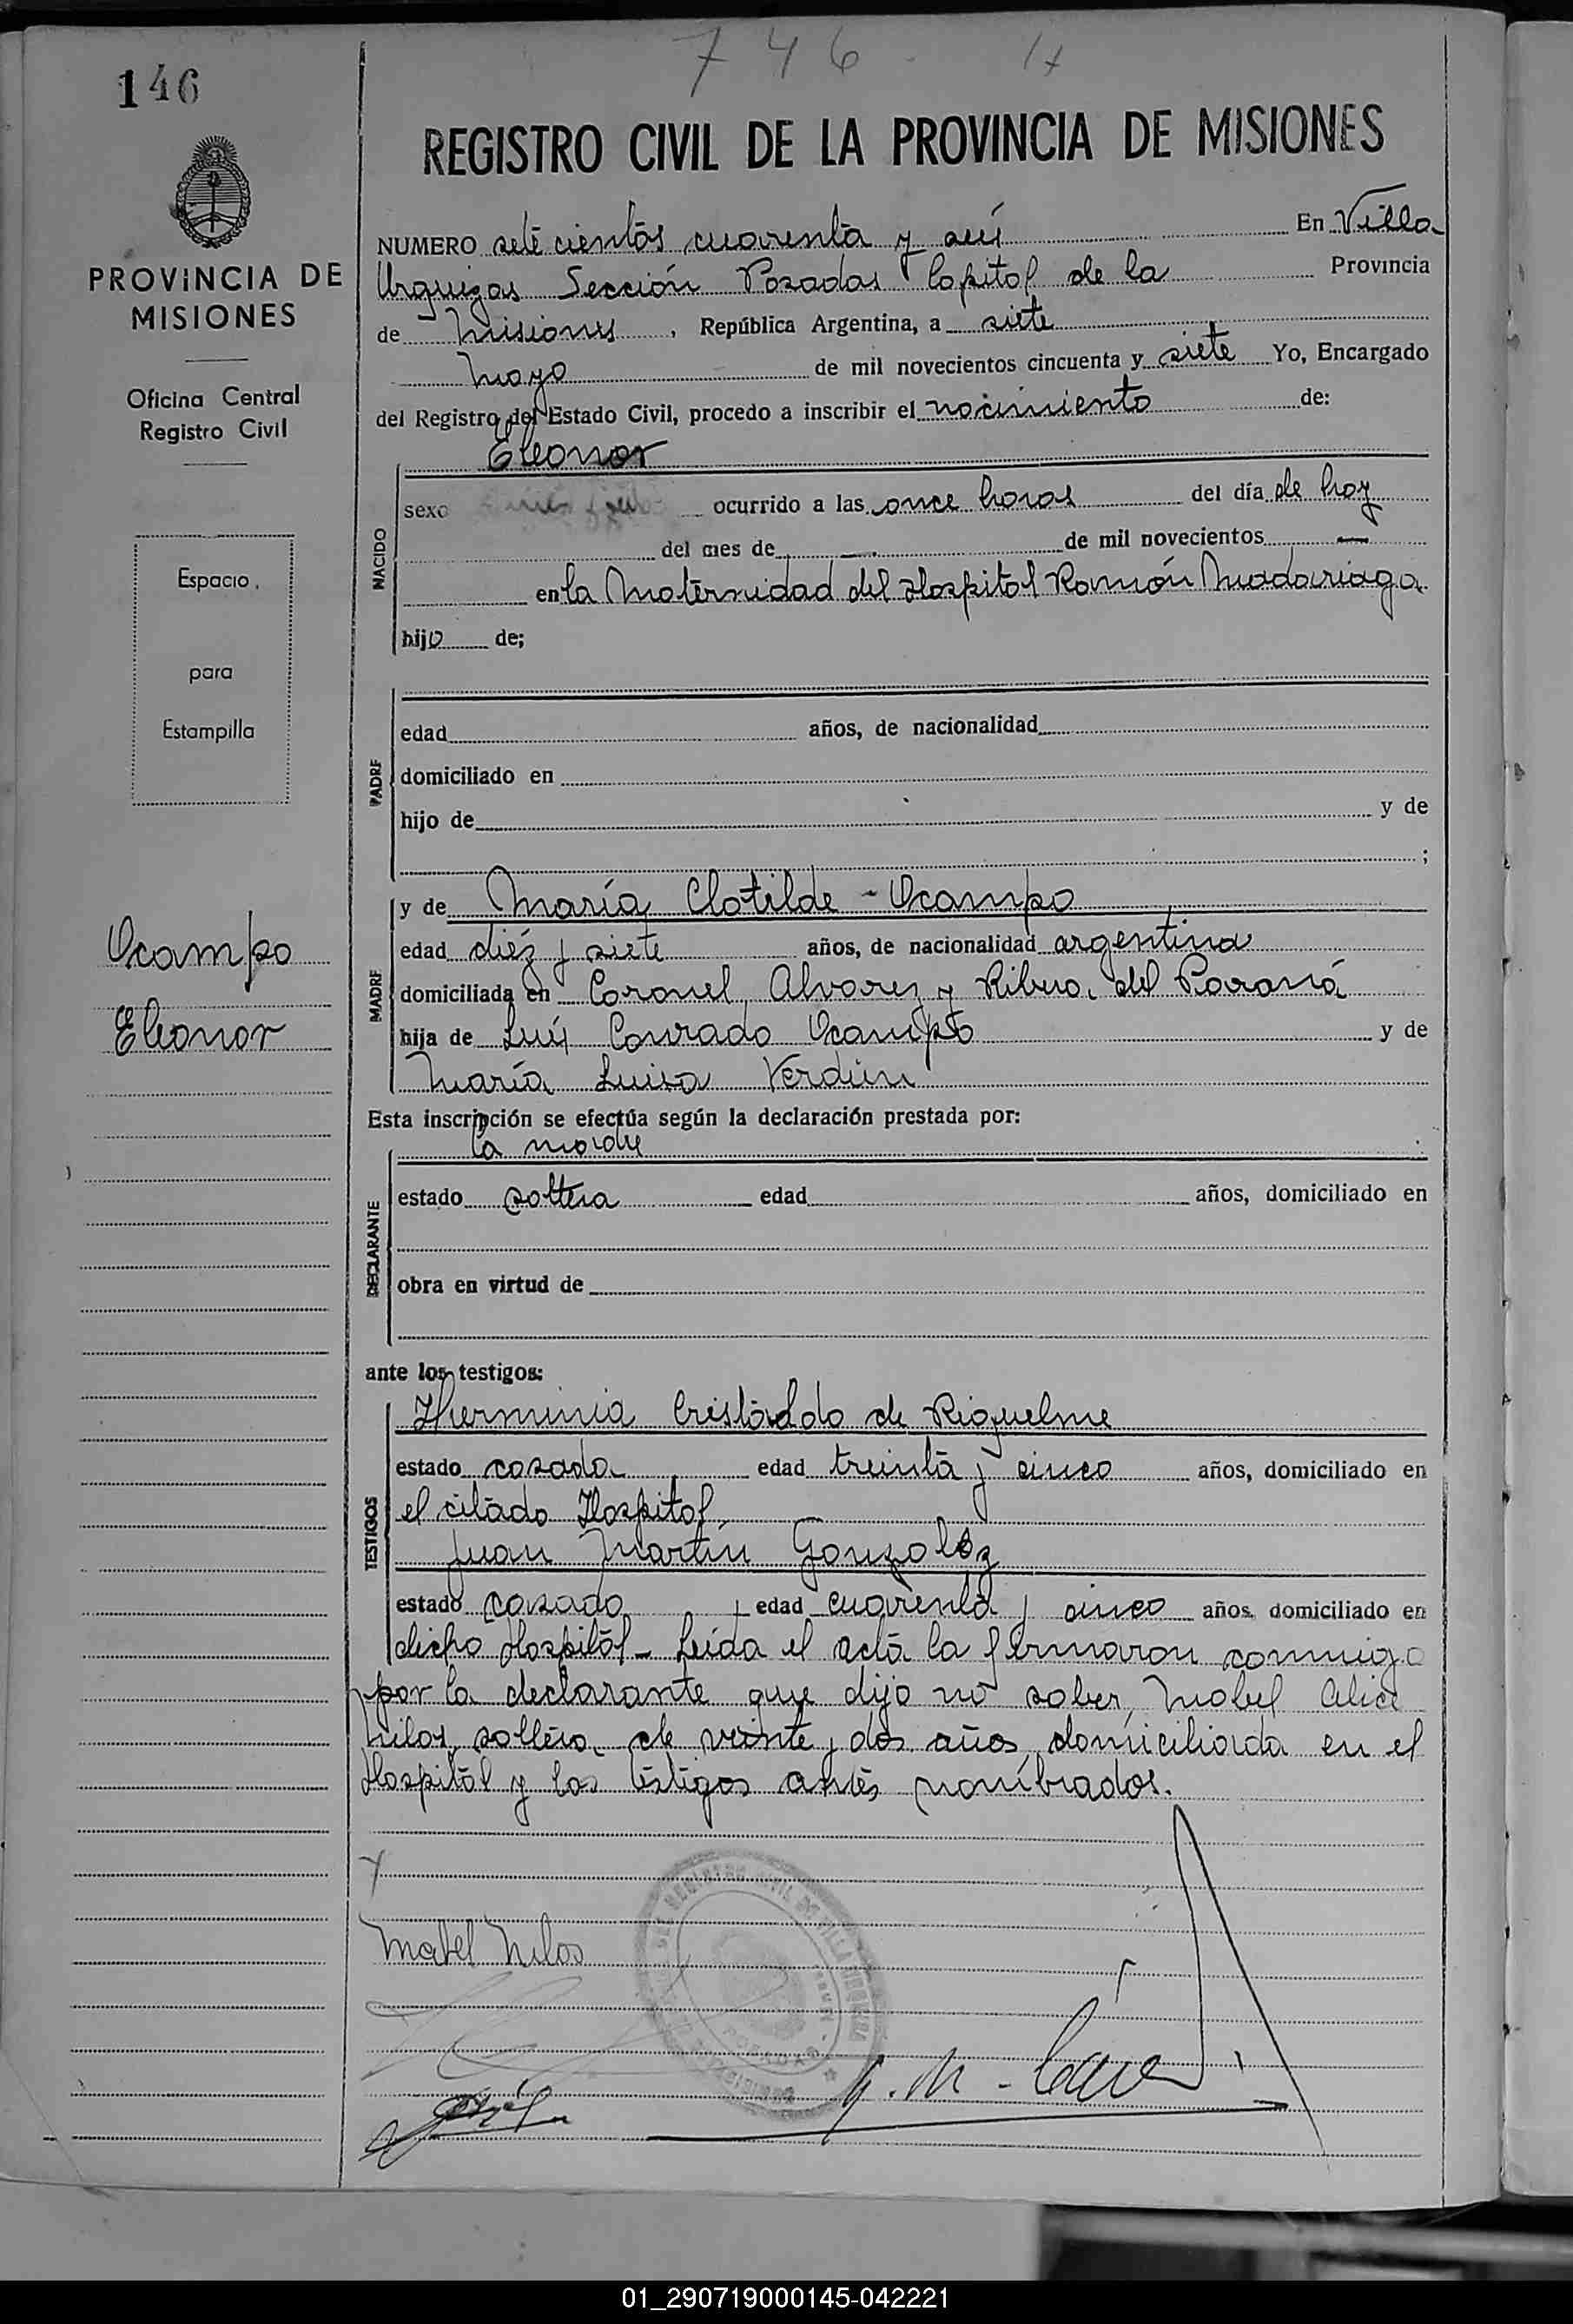 746
146
REGISTRO CIVIL DE LA PROVINCIA DE MISIONES
PROVINCIA DE
MISIONES
Oficina Central
Registro Civil
Espacio
para
Estampilla
Ocampo
Eleonor
NUMERO setecientos cuarenta y seis En Villa
Urquiza Sección Posadas Capital de la Provincia
de Misiones, República Argentina, a siete
Mayo de mil novecientos cincuenta y siete Yo, Encargado
del Registro del Estado Civil, procedo a inscribir el nacimiento de:
Eleonor
NACIDO
sexo ocurrido a las once horas del día de hoy
del mes de —. de mil novecientos —
en la Maternidad del Hospital Ramón Madariaga
hijo de;
PADRE
edad años, de nacionalidad
domiciliado en
hijo de y de
;
MADRE
y de María Clotilde - Ocampo
edad diéz y siete años, de nacionalidad argentina
domiciliada en Coronel Alvarez y Ribera del Paraná
hija de Luís Conrado Ocampo y de
María Luisa Verdún
Esta inscripción se efectúa según la declaración prestada por:
la madre
DECLARANTE
estado soltera edad años, domiciliado en
obra en virtud de
ante los testigos:
TESTIGOS
Herminia Cristaldo de Riquelme
estado casada edad treinta y cinco años, domiciliado en
el citado Hospital
Juan Martín Gonzalez
estado casado edad cuarenta y cinco años, domiciliado en
dicho Hospital - Leída el acta la firmaron conmigo
por la declarante que dijo no saber, Mabel Alice
Milos, soltera de veinte y dos años, domiciliada en el
Hospital y los testigos antes nombrados.
Mabel Milos
POSADAS
01_290719000145-042221